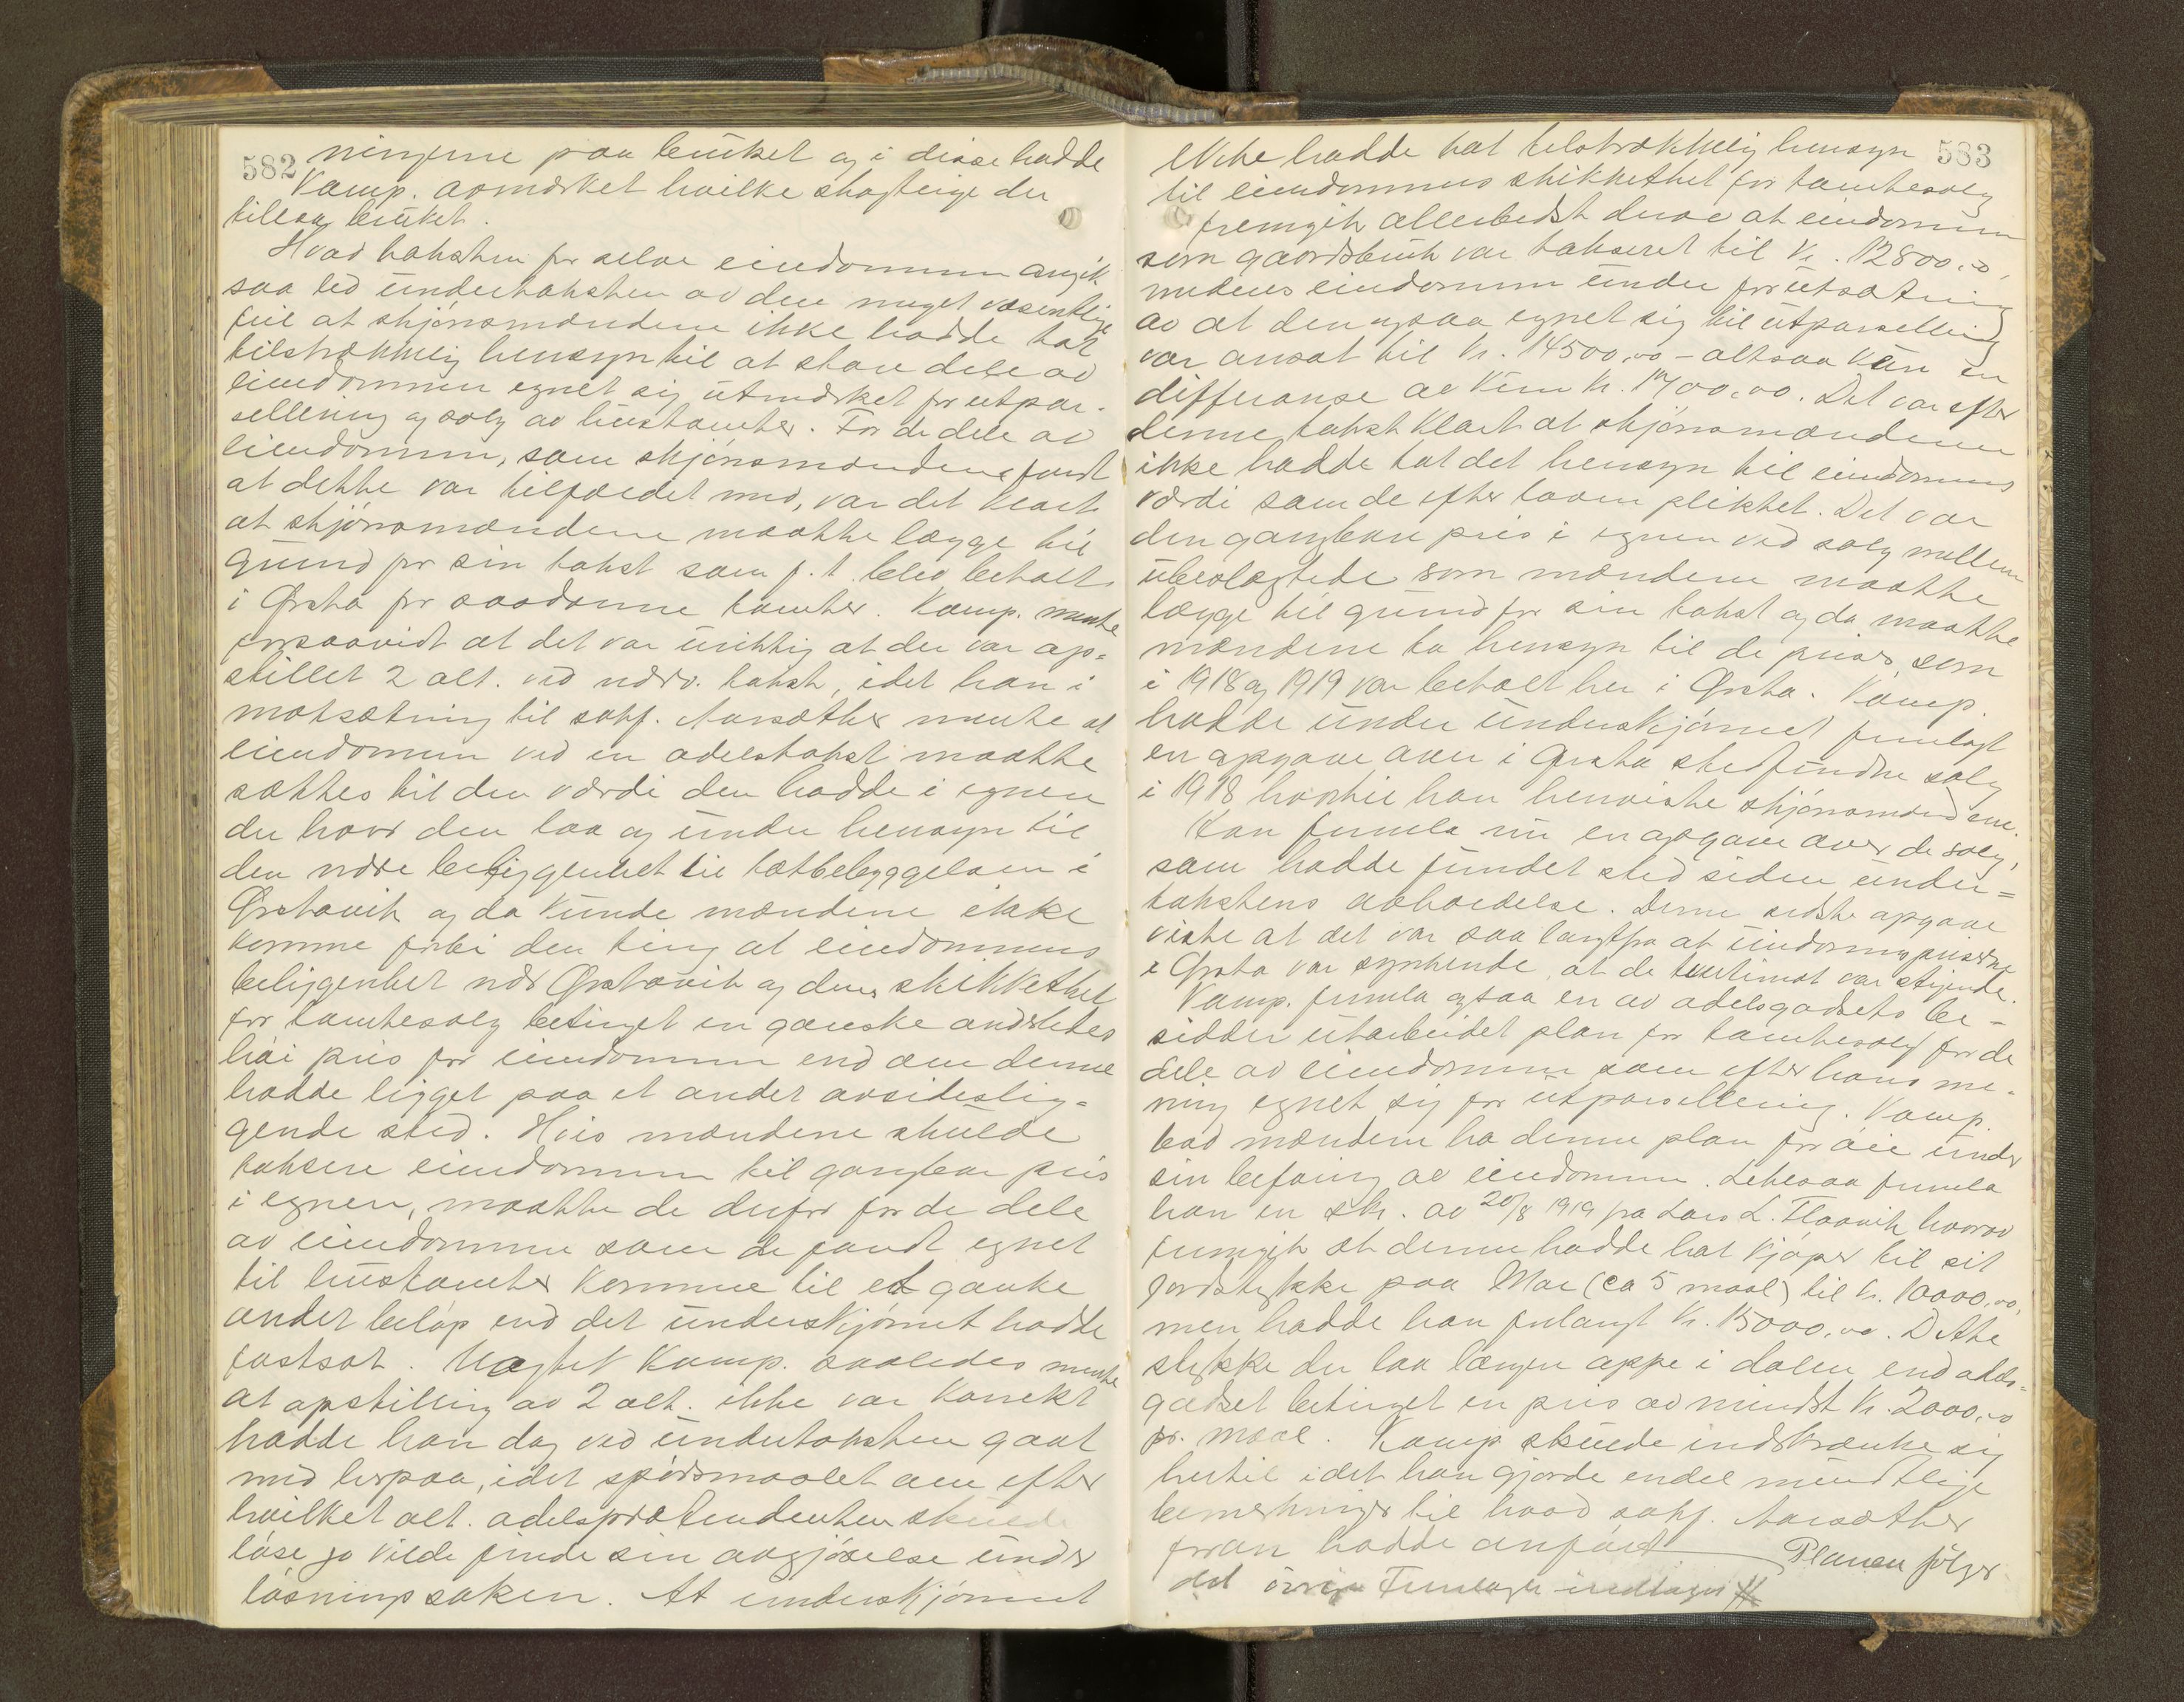 582
ningerne paa bruket og i disse hadde
Komp. avmerket hvilke skogteige der
tillaa bruket.
Hvad taksten for selve eiendommen angik
saa led undertaksten av den meget væsentlige
feil at skjønsmændene ikke hadde tat
tilstrækkelig hensyn til at store dele av
eiendommen egnet sig utmerket for utpar-
sellering og salg av hustomter. For de dele av
eiendommen, som skjønsmændene fandt
at dette var tilfældet med, var det klart
at skjønsmændene maatte lægge til
grund for sin takst som p.t. blev betalt
i Ørsta for saadanne tomter. Komp. mente
forsaavidt at det var uriktig at der var op-
stillet 2 alt. ved nærv. takst, idet han i
motsætning til sakf. Aarsæther mente at
eiendommen ved en odelstakst maatte
sættes til den værdi den hadde i egnen
der hvor den laa og under hensyn til
den nære beliggenhet til tætbebyggelsen i
Ørstavik og da kunde mændene ikke
komme forbi den ting at eiendommens
beliggenhet nær Ørstavik og dens skikkethet
for tomtesalg betinget en ganske anderledes
høi pris for eiendommen end om denne
hadde ligget paa et andet avsideslig-
gende sted. Hvis mændene skulde
taksere eiendommen til gangbar pris
i egnen, maatte de derfor for de dele
av eiendommen som de fandt egnet
til hustomter komme til et ganske
andet beløp end det underskjønnet hadde
fastsat. Uagtet Komp. saaledes mente
at opstilling av 2 alt. ikke var korrekt
hadde han dog ved undertaksten gaat
med herpaa, idet spørsmaalet om efter
hvilket alt. odelsprætendenten skulde
løse jo vilde finde sin avgjørelse under
løsningssaken. At underskjønnet
583
ikke hadde tat tilstrækkelig hensyn
til eiendommens skikkethet for tomtesalg
fremgik allerbedst derav at eiendommen
som gaardsbruk var taksert til Kr. 12800,00,
medens eiendommen under forutsætning
av at den ogsaa egnet sig til utparsellering
var ansat til Kr. 14500,00 - altsaa kun en
differanse av kun Kr. 1700,00. Det var efter
denne takst klart at skjønsmændene
ikke hadde tat det hensyn til eiendommens
værdi som de efter loven pliktet. Det var
den gangbare pris i egnen ved salg mellem
ubeslægtede som mændene maatte
lægge til grund for sin takst og da maatte
mændene ta hensyn til de priser som
i 1918 og 1919 var betalt her i Ørsta. Komp.
hadde under underskjønnet fremlagt
en opgave over i Ørsta stedfundne salg
i 1918 hvortil han henviste skjønsmændene.
Han fremla nu en opgave over de salg,
som hadde fundet sted siden under=
takstens avholdelse. Denne sidste opgave
viste at det var saa langtfra at eiendomspriserne
i Ørsta var synkende, at de tvertimot var stigende.
Komp. fremla ogsaa en av odelsgodsets be-
sidder utarbeidet plan for tomtesalg for de
dele av eiendommen som efter hans me-
ning egnet sig for utparsellering. Komp.
bad mændene ha denne plan for øie under
sin befaring av eiendommen. Likesaa fremla
han en skr. av 20/8 1919 fra Lars L. Flaavik hvorav
fremgik at denne hadde hat kjøper til sit
jordstykke paa Moe (ca 5 maal) til Kr. 10000,00,
men hadde han forlangt Kr. 15000,00. Dette
stykke der laa længer oppe i dalen end odels-
godset betinget en pris av mindst Kr. 2000,00
pr. maal. Komp. skulde indskrænke sig
hertil idet han gjorde endel mundtlige
bemerkninger til hvad sakf. Aarsæther
foran hadde anført. Planen følger
det øvrige Fremlagte indtages #